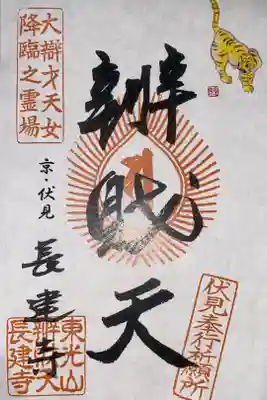 大辯才天女
降臨之霊場
辨財天
京・伏見
長建寺
東光山
辨財天
長建寺
伏見奉行祈願所